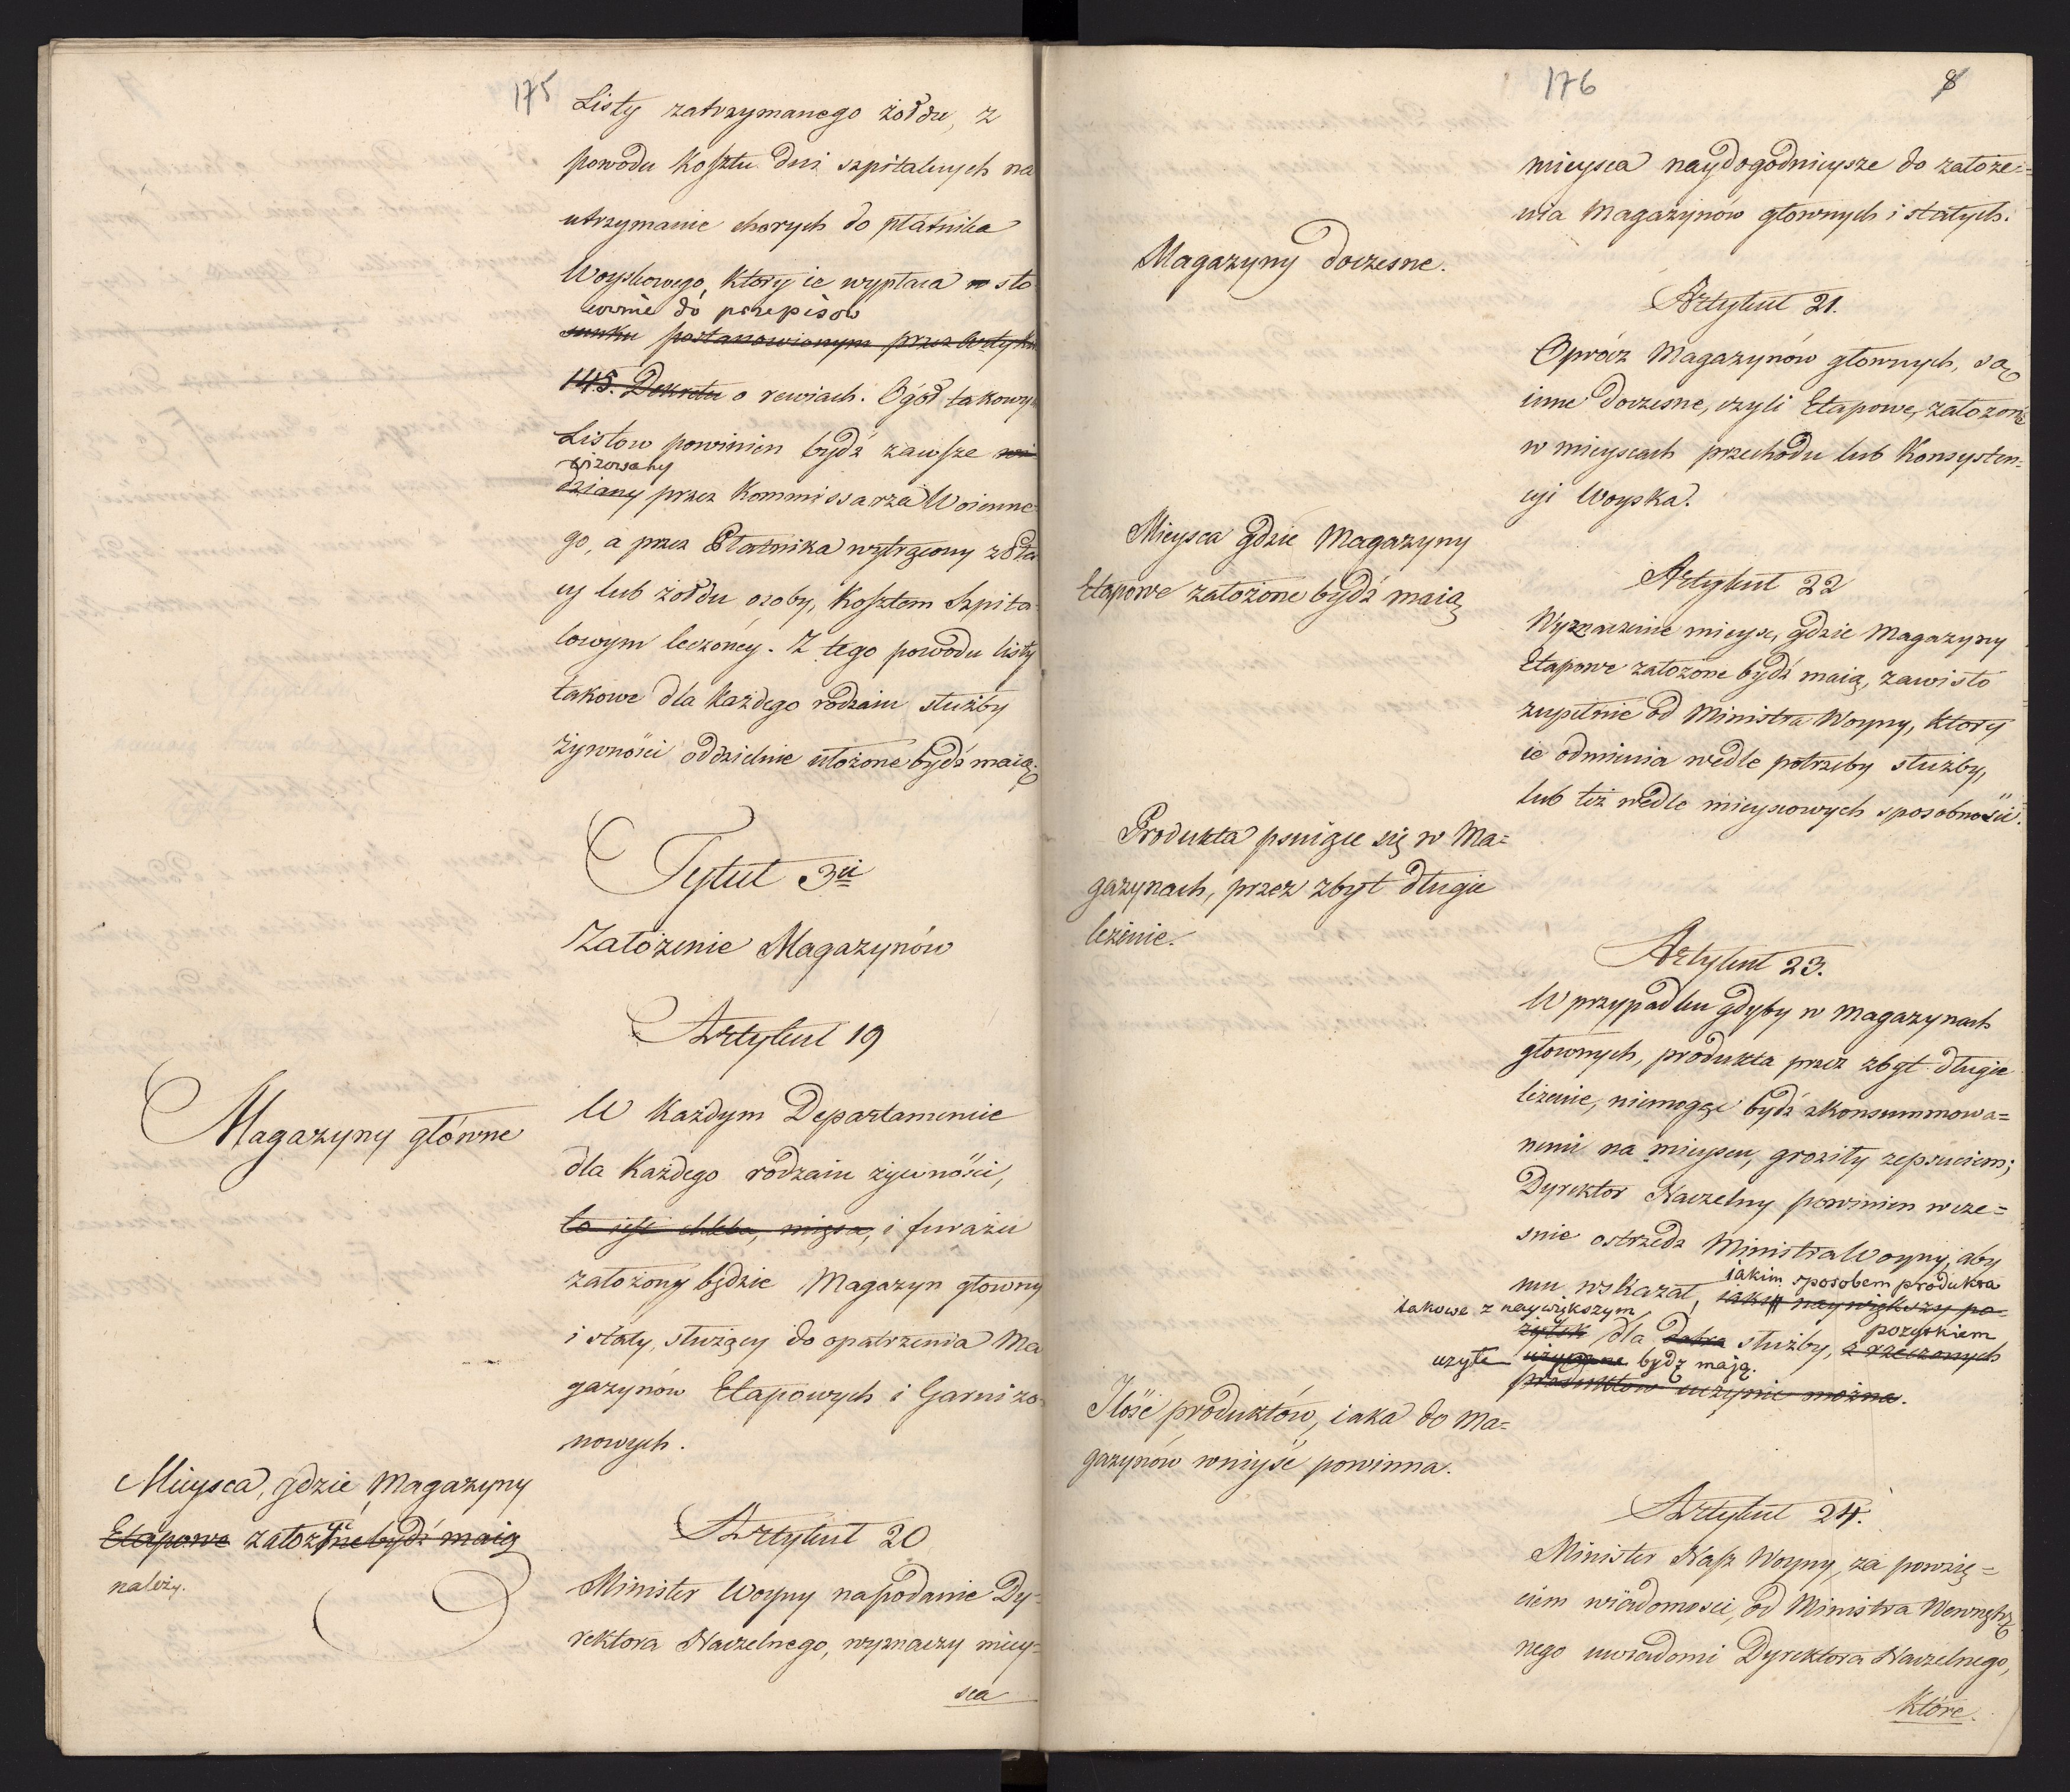 175
Listy zatrzymanego żołdu, z
powodu Kosztu dni szpitalnych na
utrzymanie chorych do płatnika
Woyskowego, który ie wypłaca w sto
sownie do przepisow
sunku postanowionym przez Artykuł
145. Dekretu o rewiach. Ogół takowych
Listow powinien bydź zawsze wi
wizowany
dziany przez Kommissarza Woienne-
go, a przez Płatnika wytrącony z Płacy
cy lub żołdu osoby, Kosztem Szpita-
lowym leczoney. Z tego powodu listy
takowe dla każdego rodzaiu służby
żywności oddzielnie ułożone bydź maią.
Tytuł 3ci
Założenie Magazynów
Artykuł 19
Magazyny główne
W Każdym Departamencie
dla Każdego rodzaiu żywności,
to iest chleba, mięsa, i furażu
założony będzie Magazyn główny
i stały, służący do opatrzenia Ma
gazynów Etapowych i Garnizo-
nowych.
Mieysca, gdzie Magazyny
Etapowe założone bydź maią
należy.
Artykuł 20
Minister Woyny na podanie Dy-
rektora Naczelnego, wyznaczy miey-
sca
176
8
mieysca naydogodnieysze do założe=
nia Magazynów głownych i stałych.
Magazyny doczesne.
Artykuł 21.
Oprócz Magazynów głownych, są
inne doczesne, czyli Etapowe, założone
w mieyscach przechodu lub Konsysten-
cyi Woyska.
Mieysca gdzie Magazyny
Etapowe założone bydź maią
Artykuł 22
Wyznaczenie mieysc, gdzie Magazyny
Etapowe założone bydź maią, zawisło
zupełnie od Ministra Woyny, który
ie odmienia wedle potrzeby służby,
lub też wedle mieyscowych sposobności.
Produkta psuiące się w Ma=
gazynach, przez zbyt długie
leżenie.
Artykuł 23.
W przypadku gdyby w magazynach
głownych, produkta przez zbyt długie
leżenie, niemogąc bydź skonsummowa=
nemi na mieyscu, groziły zepsuciem;
Dyrektor Naczelny powinien wcze=
snie ostrzedz Ministra Woyny, aby
jakim sposobem produkta
mu wskazał, iaki naywiększy po-
takowe z naywiększym
żytek dla dobra służby, z rzeczonych
pozyskiem
użyte używane bydź mają.
produktow uczynić można.
Ilość produktów, iaka do Ma=
gazynów wniyść powinna.
Artykuł 24.
Minister Nasz Woyny, za powzię=
ciem wiadomości, od Ministra Wewnętrz
nego uwiadomi Dyrektora Naczelnego,
które